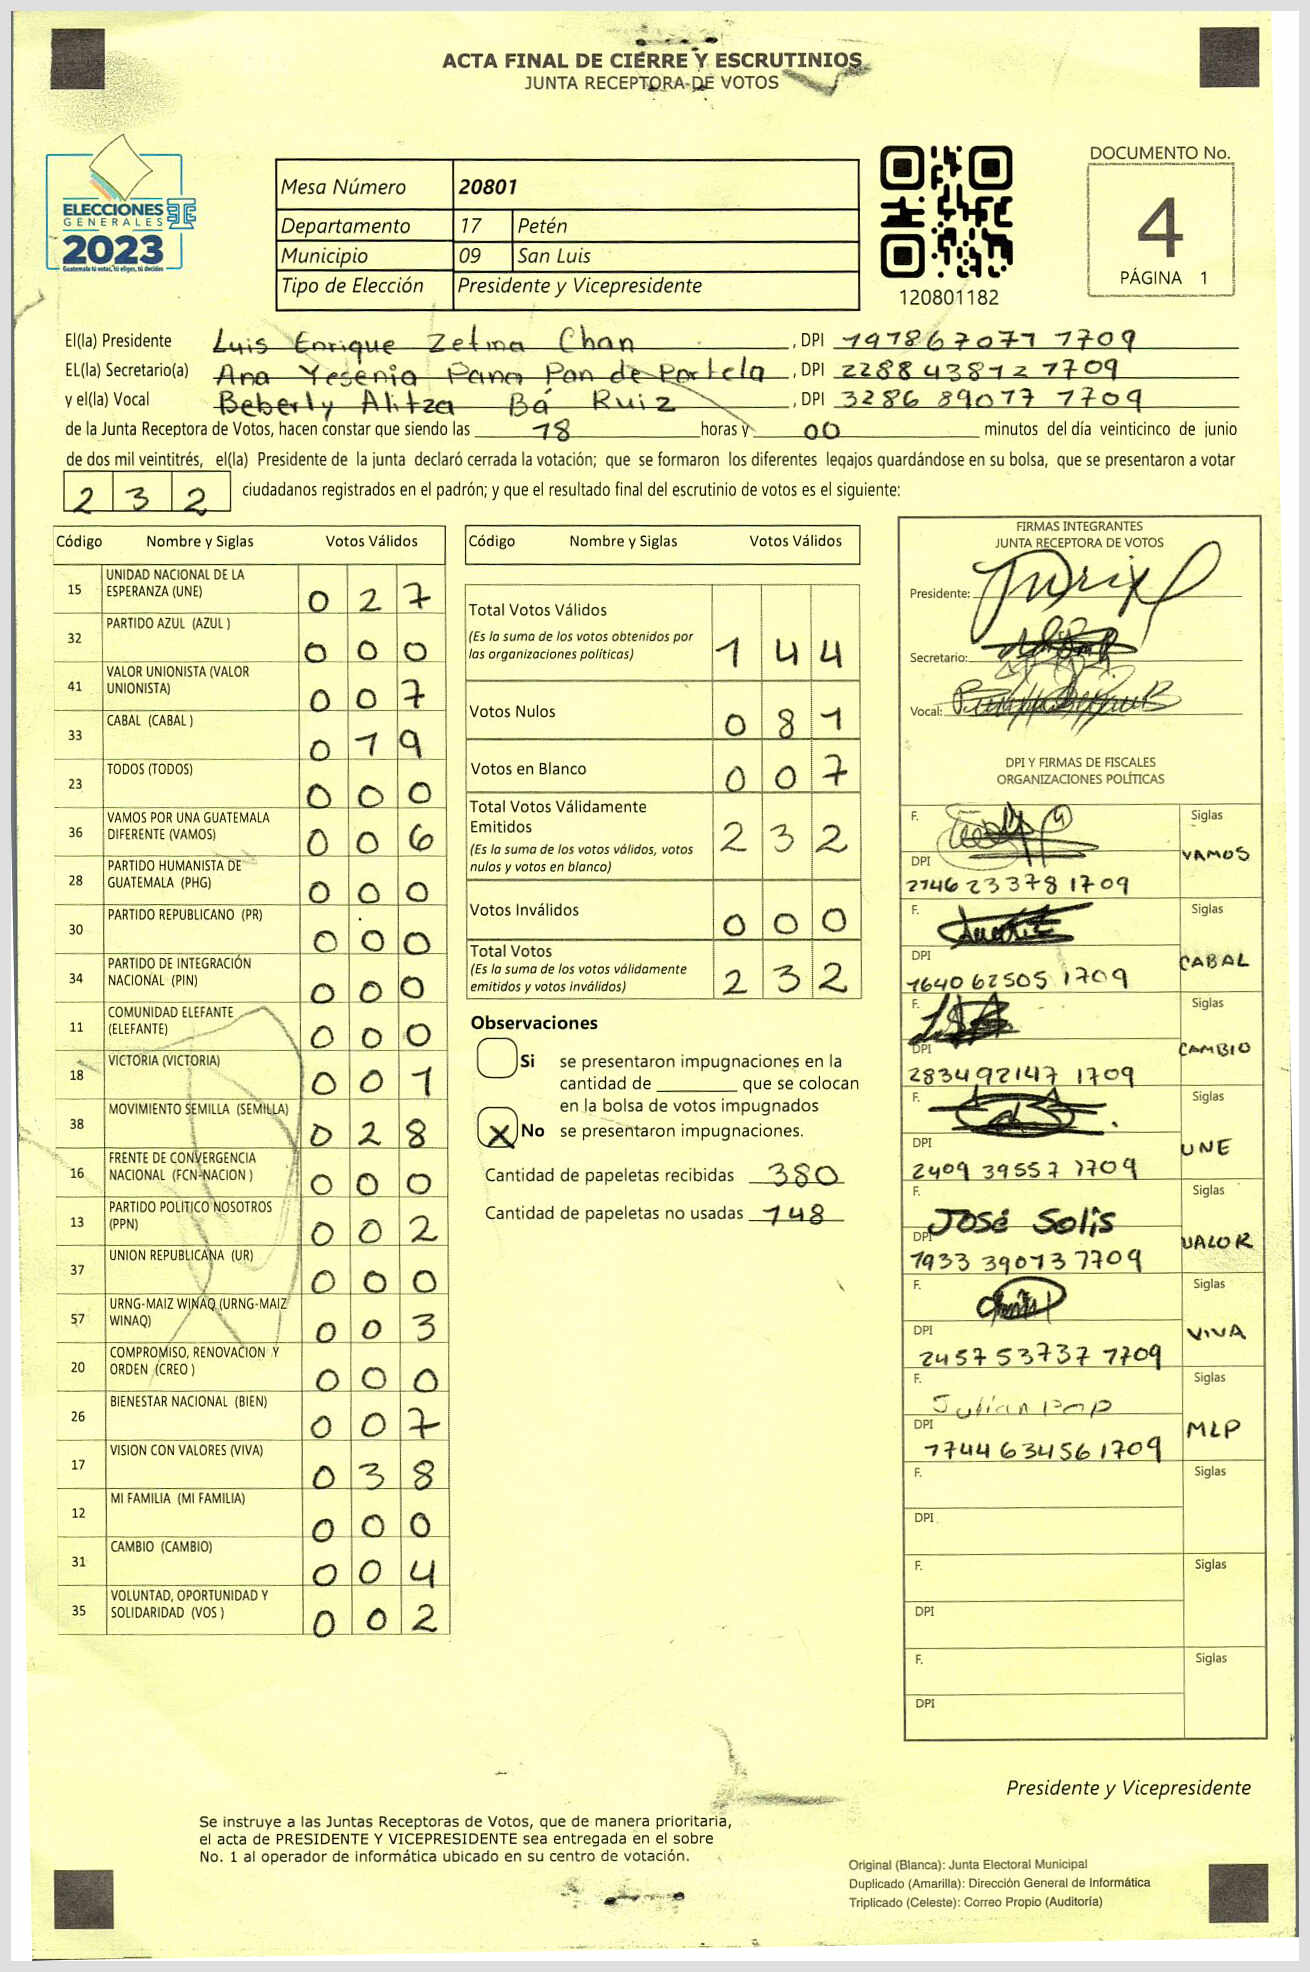 ACTA FINAL DE CIERRE Y ESCRUTINIOS
JUNTA RECEPTORA DE VOTOS
ELECCIONES
GENERALES
2023
Guatemala tú votas, tú eliges, tú decides
Mesa Número 20801
Departamento 17 Petén
Municipio 09 San Luis
Tipo de Elección Presidente y Vicepresidente
120801182
DOCUMENTO No.
4
PÁGINA 1
El(la) Presidente Luis Enrique Zetina Chan, DPI 197867071 1709
EL(la) Secretario(a) Ana Yesenia Pana Pan de Portela, DPI 228843812 1709
y el(la) Vocal Beberly Alitza Bá Ruiz, DPI 3286 89077 1709
de la Junta Receptora de Votos, hacen constar que siendo las 18 horas y 00 minutos del día veinticinco de junio
de dos mil veintitrés, el(la) Presidente de la junta declaró cerrada la votación; que se formaron los diferentes legajos guardándose en su bolsa, que se presentaron a votar
232 ciudadanos registrados en el padrón; y que el resultado final del escrutinio de votos es el siguiente:
Código Nombre y Siglas Votos Válidos
15 UNIDAD NACIONAL DE LA ESPERANZA (UNE) 027
32 PARTIDO AZUL (AZUL ) 000
41 VALOR UNIONISTA (VALOR UNIONISTA) 007
33 CABAL (CABAL ) 019
23 TODOS (TODOS) 000
36 VAMOS POR UNA GUATEMALA DIFERENTE (VAMOS) 006
28 PARTIDO HUMANISTA DE GUATEMALA (PHG) 000
30 PARTIDO REPUBLICANO (PR) 000
34 PARTIDO DE INTEGRACIÓN NACIONAL (PIN) 000
11 COMUNIDAD ELEFANTE (ELEFANTE) 000
18 VICTORIA (VICTORIA) 001
38 MOVIMIENTO SEMILLA (SEMILLA) 028
16 FRENTE DE CONVERGENCIA NACIONAL (FCN-NACION ) 000
13 PARTIDO POLITICO NOSOTROS (PPN) 002
37 UNION REPUBLICANA (UR) 000
57 URNG-MAIZ WINAQ (URNG-MAIZ WINAQ) 003
20 COMPROMISO, RENOVACION Y ORDEN (CREO ) 000
26 BIENESTAR NACIONAL (BIEN) 007
17 VISION CON VALORES (VIVA) 038
12 MI FAMILIA (MI FAMILIA) 000
31 CAMBIO (CAMBIO) 004
35 VOLUNTAD, OPORTUNIDAD Y SOLIDARIDAD (VOS ) 002
Código Nombre y Siglas Votos Válidos
Total Votos Válidos
(Es la suma de los votos obtenidos por
las organizaciones políticas) 144
Votos Nulos 081
Votos en Blanco 007
Total Votos Válidamente
Emitidos
(Es la suma de los votos válidos, votos
nulos y votos en blanco) 232
Votos Inválidos 000
Total Votos
(Es la suma de los votos válidamente
emitidos y votos inválidos) 232
Observaciones
Si se presentaron impugnaciones en la
cantidad de ________ que se colocan
en la bolsa de votos impugnados
X No se presentaron impugnaciones.
Cantidad de papeletas recibidas 380
Cantidad de papeletas no usadas 148
FIRMAS INTEGRANTES
JUNTA RECEPTORA DE VOTOS
Presidente:
Secretario:
Vocal:
DPI Y FIRMAS DE FISCALES
ORGANIZACIONES POLÍTICAS
F. Siglas
DPI VAMOS
2746 23378 1709
F. Siglas
DPI CABAL
1640 62505 1709
F. Siglas
DPI CAMBIO
283492147 1709
F. Siglas
DPI UNE
2409 39557 1709
F. Siglas
JOSÉ SOLIS
DPI VALOR
1933 39013 1709
F. Siglas
DPI VIVA
2457 53737 1709
F. Siglas
Julian Pop
DPI MLP
1744 63456 1709
F. Siglas
DPI
F. Siglas
DPI
F. Siglas
DPI
Presidente y Vicepresidente
Se instruye a las Juntas Receptoras de Votos, que de manera prioritaria,
el acta de PRESIDENTE Y VICEPRESIDENTE sea entregada en el sobre
No. 1 al operador de informática ubicado en su centro de votación.
Original (Blanca): Junta Electoral Municipal
Duplicado (Amarilla): Dirección General de Informática
Triplicado (Celeste): Correo Propio (Auditoría)